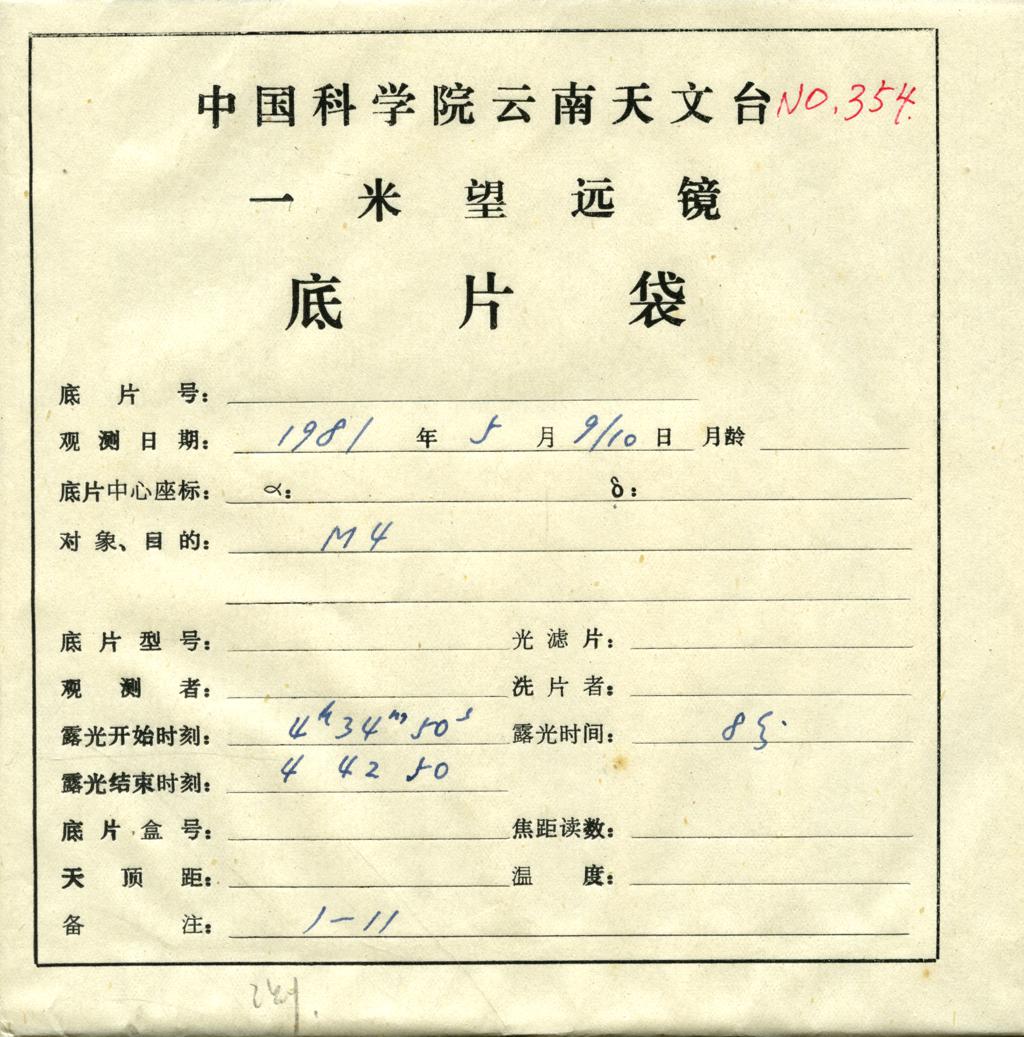 中国科学院云南天文台 NO.354.
一米望远镜
底片袋
底片号：
观测日期： 1981 年 5 月 9/10 日 月龄
底片中心座标： α： δ：
对象、目的： M4
底片型号： 光滤片：
观测者： 洗片者：
露光开始时刻： 4h34m50s 露光时间： 8分
露光结束时刻： 4 42 50
底片盒号： 焦距读数：
天顶距： 温度：
备注： 1-11